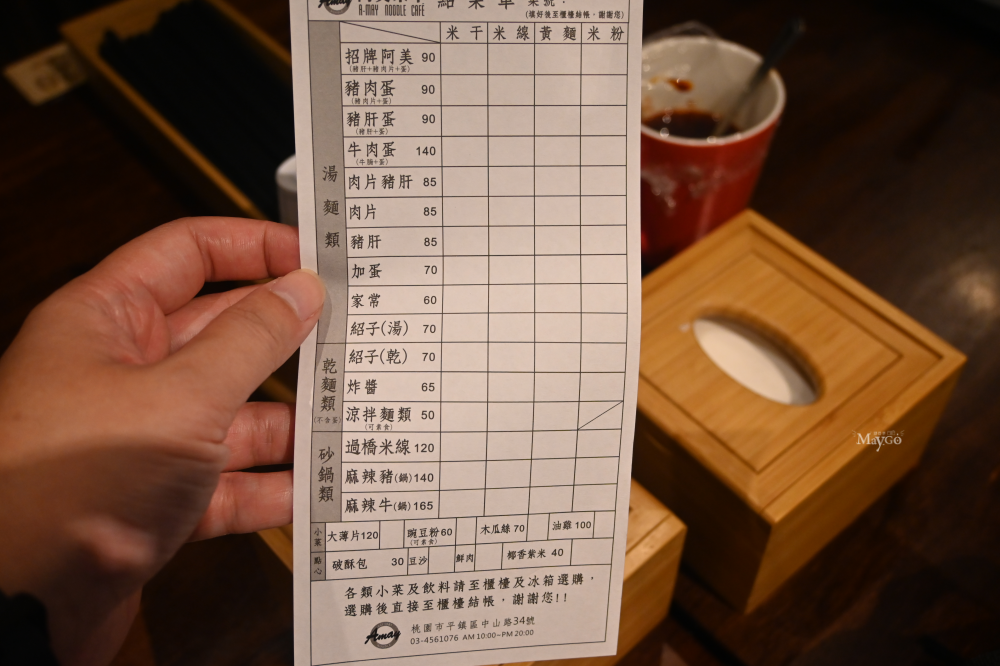 A-MAY NOODLE CAFÉ
(填好後至櫃檯結帳,謝謝您)
米干 米線 黃麵 米粉
湯麵類
招牌阿美 90
(豬肝+豬肉片+蛋)
豬肉蛋 90
(豬肉片+蛋)
豬肝蛋 90
(豬肝+蛋)
牛肉蛋 140
(牛腩+蛋)
肉片豬肝 85
肉片 85
豬肝 85
加蛋 70
家常 60
紹子(湯) 70
乾麵類
(不含蛋)
紹子(乾) 70
炸醬 65
涼拌麵類 50
(可素食)
砂鍋類
過橋米線 120
麻辣豬(鍋) 140
麻辣牛(鍋) 165
小菜 大薄片 120 豌豆粉 60 木瓜絲 70 油雞 100
(可素食)
點心 破酥包 30 豆沙 鮮肉 椰香紫米 40
各類小菜及飲料請至櫃檯及冰箱選購,
選購後直接至櫃檯結帳,謝謝您!!
Amay
桃園市平鎮區中山路34號
03-4561076 AM 10:00~PM 20:00
MayGo